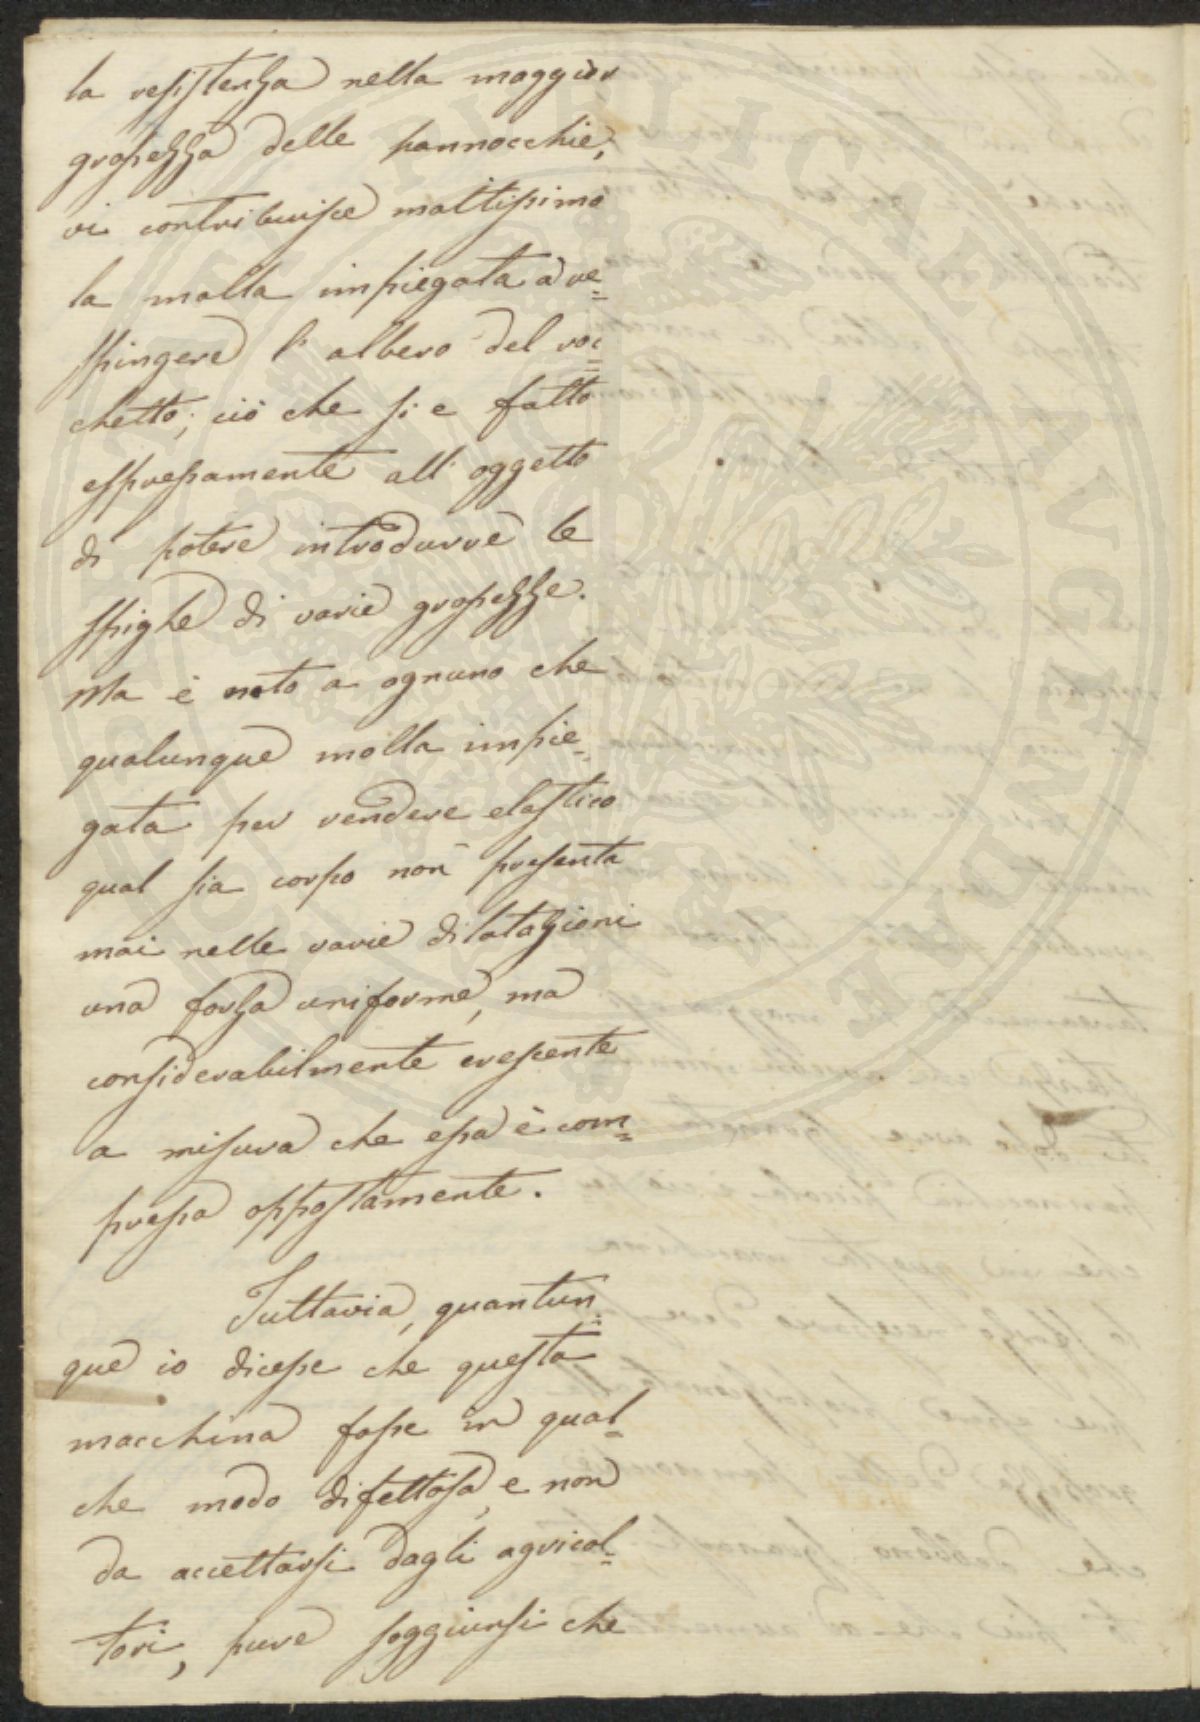 la resistenza nella maggior
grossezza delle pannocchie,
vi contribuisce moltissimo
la molla impiegata a re=
spingere l'albero del roc=
chetto; ciò che si e fatto
espressamente all'oggetto
di potere introdurre le
spighe di varie grossezze.
Ma è noto a ognuno che
qualunque molla impie=
gata per rendere elastico
qual sia corpo non presenta
mai nelle varie dilatazioni
una forza uniforme, ma
considerabilmente crescente
a misura che essa è com=
pressa oppostamente.
Tuttavia, quantun=
que io dicesse che questa
macchina fosse in qual=
che modo difettosa, e non
da accettarsi dagli agricol=
tori, pure soggiunsi che